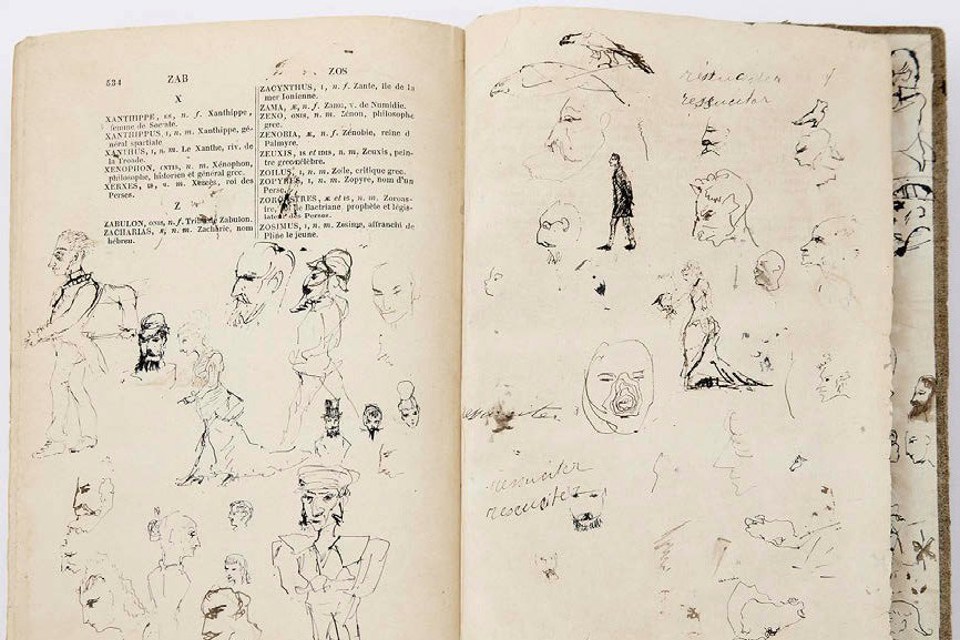 534
ZAB
ZOS
X
XANTHIPPE, es, n. f. Xanthippe,
femme de Socrate.
XANTHIPPUS, i, n. m. Xanthippe, gé-
néral spartiate
XANTHUS, i, n. m. Le Xanthe, riv. de
la Troade.
XENOPHON, ontis, n. m. Xénophon,
philosophe, historien et général grec.
XERXES, is, n. m. Xerxès, roi des
Perses.
Z
ZABULON, onis, n. f. Tribu de Zabulon.
ZACHARIAS, æ, n. m. Zacharie, nom
hébreu.
ZACYNTHUS, i, n. f. Zante, île de la
mer Ionienne.
ZAMA, æ, n. f. Zama, v. de Numidie.
ZENO, onis, n. m. Zénon, philosophe
grec.
ZENOBIA, æ, n. f. Zénobie, reine d
Palmyre.
ZEUXIS, is et idis, n. m. Zeuxis, pein-
tre grec célèbre.
ZOILUS, i, n. m. Zoïle, critique grec.
ZOPYRUS, i, n. m. Zopyre, nom d'un
Perse.
ZOROASTRES, æ et is, n. m. Zoroas-
tre, de Bactriane, prophète et légis-
lateur des Perses.
ZOSIMUS, i, n. m. Zosime, affranchi de
Pline le jeune.
ressusciter
ressuciter
resuciter